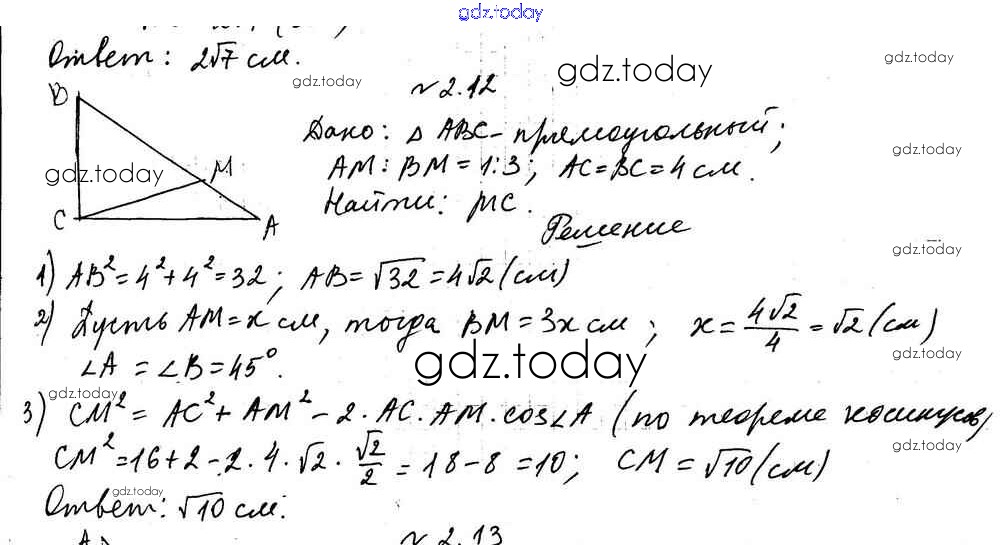 gdz.today
Ответ: 2√7 см.
gdz.today
gdz.today
gdz.today
№2.12
B
M
C
A
gdz.today
Дано: △ ABC - прямоугольный;
AM : BM = 1:3; AC = BC = 4 см.
Найти: MC.
gdz.today
Решение
gdz.today
1) AB² = 4² + 4² = 32; AB = √32 = 4√2 (см)
2) Пусть AM = x см, тогда BM = 3x см; x = 4√2/4 = √2 (см)
∠A = ∠B = 45°.
gdz.today
gdz.today
gdz.today
3) CM² = AC² + AM² - 2 · AC · AM · cos∠A (по теореме косинусов)
CM² = 16 + 2 - 2 · 4 · √2 · √2/2 = 18 - 8 = 10; CM = √10 (см)
gdz.today
gdz.today
Ответ: √10 см.
№2.13